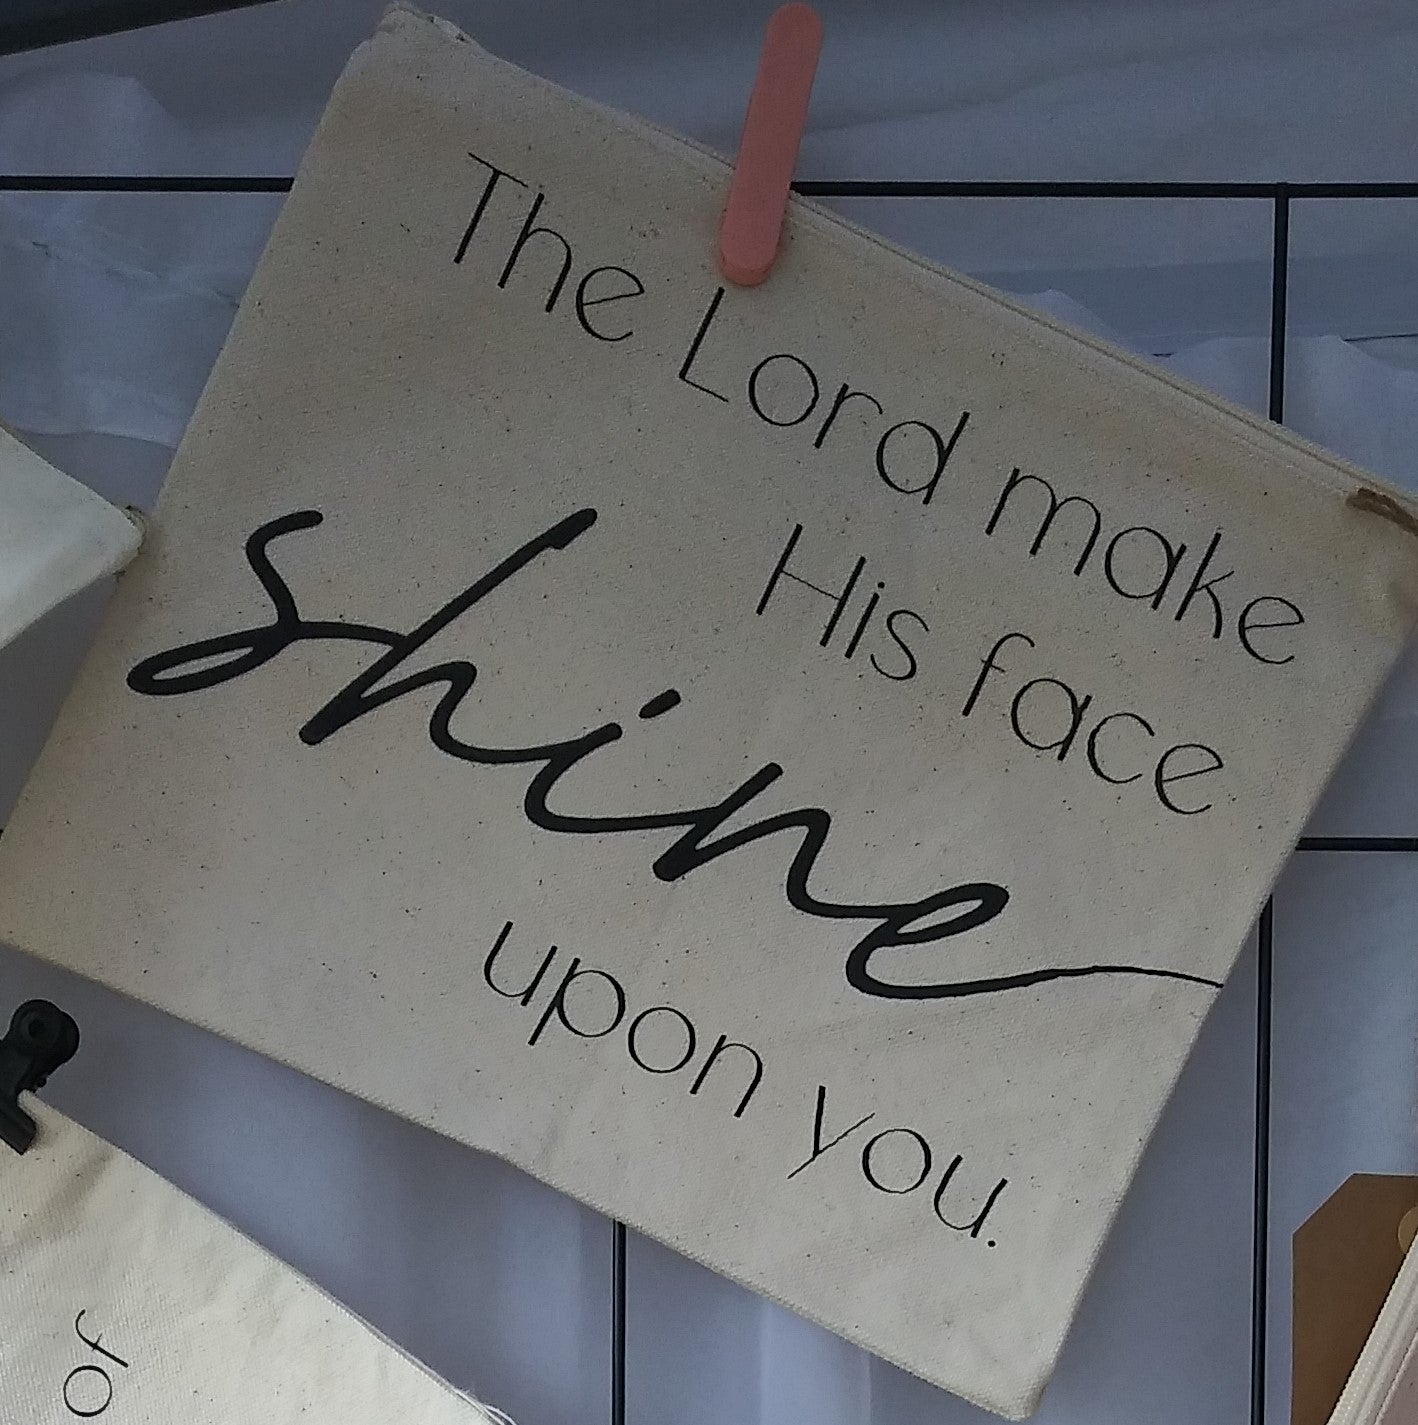 The Lord make
His face
shine
upon you.
of